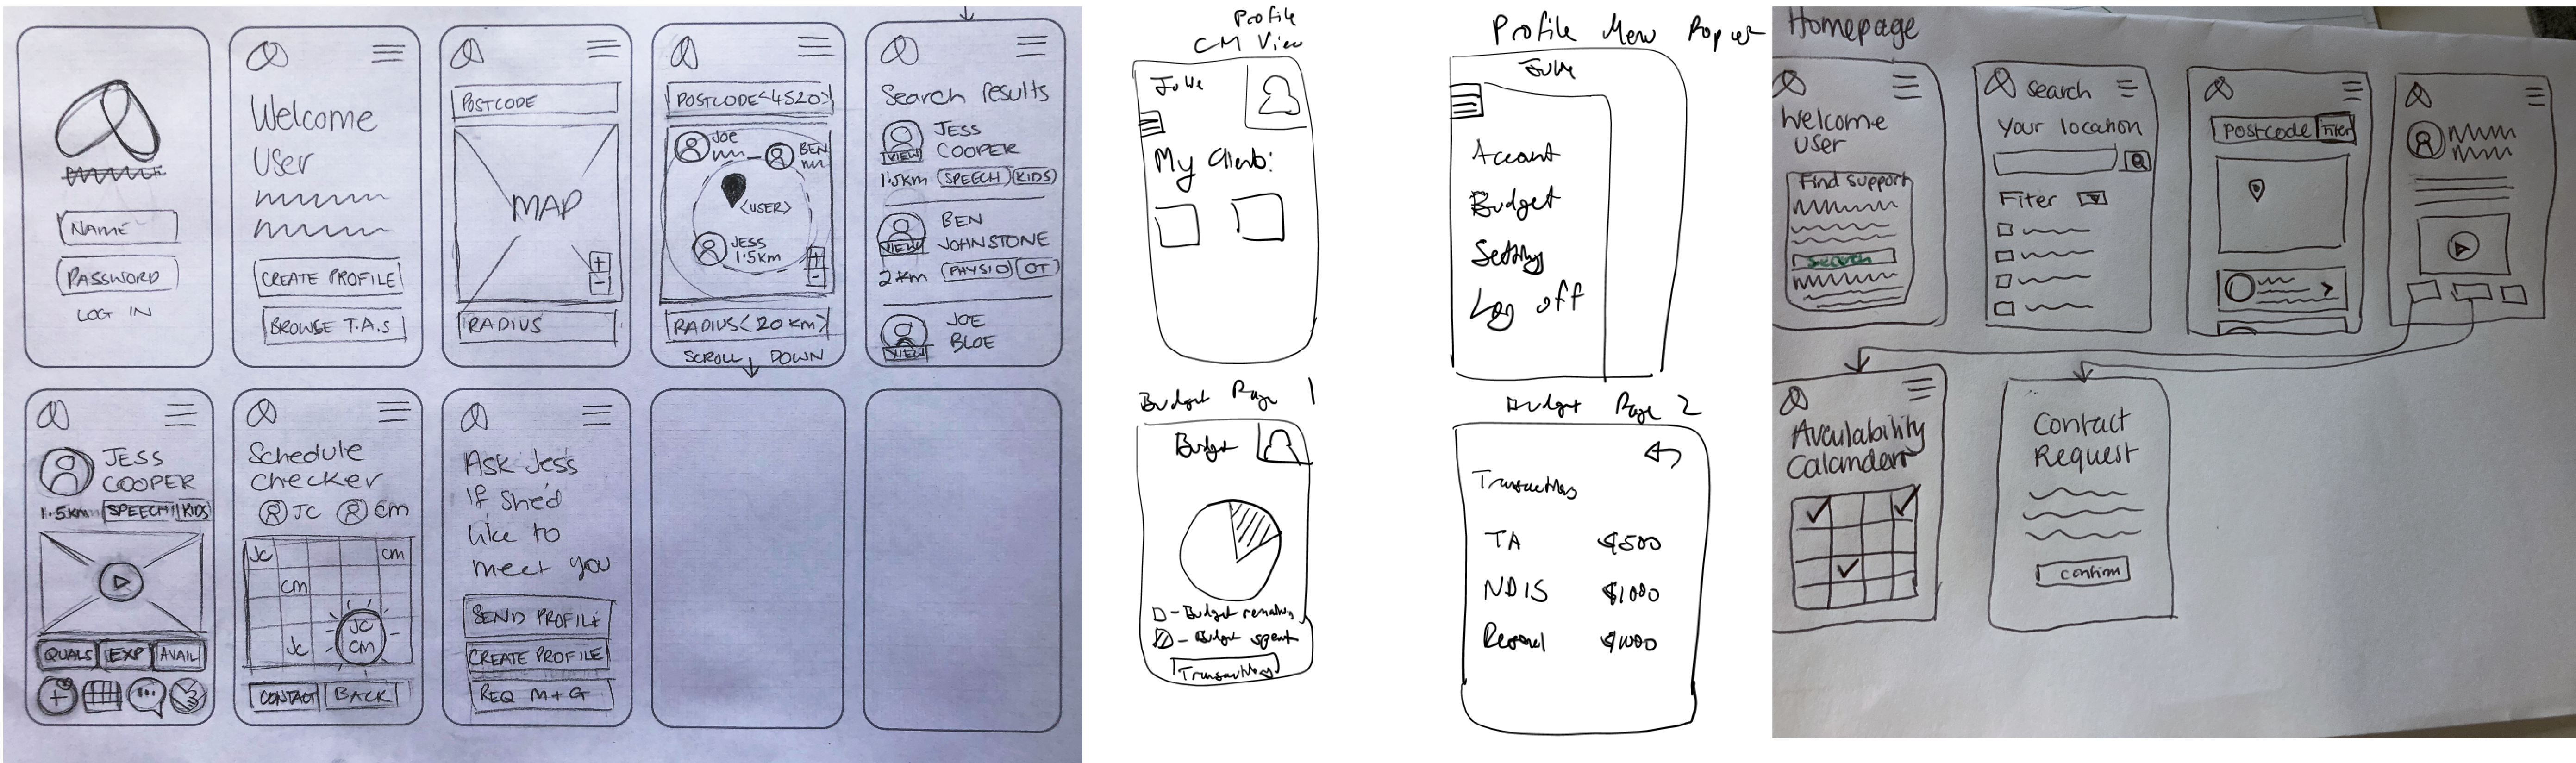 NAME
PASSWORD
LOG IN
Welcome
User
CREATE PROFILE
BROWSE T.A.S
POSTCODE
MAP
+
-
RADIUS
POSTCODE<4520>
JOE
BEN
<USER>
JESS
1.5km
+
-
RADIUS<20KM>
SCROLL DOWN
Search results
JESS
COOPER
VIEW
1.5km SPEECH KIDS
BEN
JOHNSTONE
VIEW
2km PHYSIO OT
JOE
BLOE
VIEW
JESS
COOPER
1.5km SPEECH KIDS
QUALS EXP AVAIL
+
Schedule
checker
JC CM
JC CM
CM
JC
JC
CM
CONTACT BACK
Ask Jess
if she'd
like to
meet you
SEND PROFILE
CREATE PROFILE
REQ M+G
Profile
CM View
My Clients:
Profile Menu
Account
Budget
Log off
Budget Page 1
Budget
- Budget remaining
- Budget spent
Transactions
Budget Page 2
Transactions
TA $500
NDIS $1000
$1000
Homepage
Welcome
User
Find support
Search
Search
Your location
Filter
postcode Filter
Calandar
Contact
Request
confirm